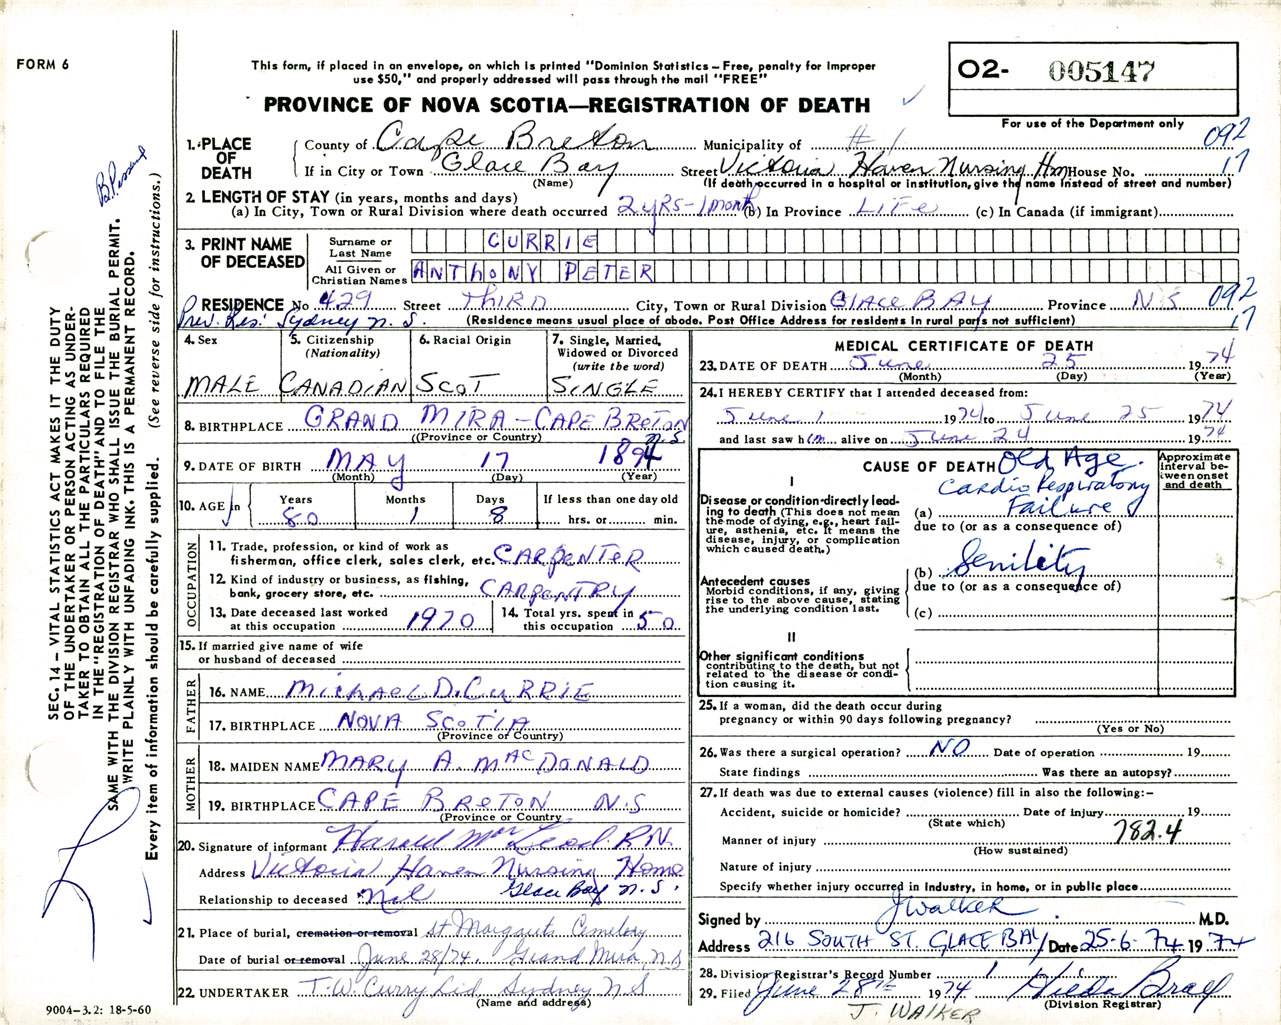 FORM 6
This form, if placed in an envelope, on which is printed "Dominion Statistics – Free, penalty for improper
use $50," and properly addressed will pass through the mail "FREE"
PROVINCE OF NOVA SCOTIA—REGISTRATION OF DEATH
O2- 005147
For use of the Department only
1. PLACE OF DEATH
County of Cape Breton Municipality of #1 092
If in City or Town Glace Bay Street Victoria Haven Nursing Hm House No. 17
(Name) (If death occurred in a hospital or institution, give the name instead of street and number)
2. LENGTH OF STAY (in years, months and days)
(a) In City, Town or Rural Division where death occurred 2 yrs-1 month (b) In Province LIFE (c) In Canada (if immigrant)
3. PRINT NAME OF DECEASED
Surname or Last Name CURRIE
All Given or Christian Names ANTHONY PETER
RESIDENCE No 429 Street THIRD City, Town or Rural Division GLACE BAY Province N.S 092
Prev. Res: Sydney N.S. (Residence means usual place of abode. Post Office Address for residents in rural parts not sufficient) 17
4. Sex 5. Citizenship (Nationality) 6. Racial Origin 7. Single, Married, Widowed or Divorced (write the word)
MALE CANADIAN SCOT SINGLE
8. BIRTHPLACE GRAND MIRA - CAPE BRETON N.S
(Province or Country)
9. DATE OF BIRTH MAY 17 1894
(Month) (Day) (Year)
10. AGE in Years Months Days If less than one day old
80 1 8 hrs. or min.
OCCUPATION
11. Trade, profession, or kind of work as
fisherman, office clerk, sales clerk, etc. CARPENTER
12. Kind of industry or business, as fishing,
bank, grocery store, etc. CARPENTRY
13. Date deceased last worked
at this occupation 1970
14. Total yrs. spent in
this occupation 50
15. If married give name of wife
or husband of deceased
FATHER
16. NAME MICHAEL D. CURRIE
17. BIRTHPLACE NOVA SCOTIA
(Province or Country)
MOTHER
18. MAIDEN NAME MARY A. MacDONALD
19. BIRTHPLACE CAPE BRETON N.S
(Province or Country)
20. Signature of informant Harold MacLeod. R.N.
Address Victoria Haven Nursing Home
Relationship to deceased Nil Glace Bay N.S.
21. Place of burial, cremation or removal St Margarets Cemetery
Date of burial or removal June 28/74. Grand Mira, N.S
22. UNDERTAKER T.W. Curry Ltd Sydney N.S
(Name and address)
MEDICAL CERTIFICATE OF DEATH
23. DATE OF DEATH June 25 1974
(Month) (Day) (Year)
24. I HEREBY CERTIFY that I attended deceased from:
June 1 1974 to June 25 1974
and last saw him alive on June 24 1974
CAUSE OF DEATH Old Age.
Approximate interval between onset and death
I
Disease or condition directly leading to death (This does not mean the mode of dying, e.g., heart failure, asthenia, etc. It means the disease, injury, or complication which caused death.)
Cardio Respiratory
(a) Failure
due to (or as a consequence of)
Antecedent causes
Morbid conditions, if any, giving rise to the above cause, stating the underlying condition last.
(b) Senility
due to (or as a consequence of)
(c)
II
Other significant conditions
contributing to the death, but not related to the disease or condition causing it.
25. If a woman, did the death occur during
pregnancy or within 90 days following pregnancy?
(Yes or No)
26. Was there a surgical operation? NO Date of operation 19
State findings Was there an autopsy?
27. If death was due to external causes (violence) fill in also the following:–
Accident, suicide or homicide? Date of injury 19
(State which)
Manner of injury 782.4
(How sustained)
Nature of injury
Specify whether injury occurred in industry, in home, or in public place
Signed by J Walker M.D.
Address 216 SOUTH ST. GLACE BAY Date 25-6-74 1974
28. Division Registrar's Record Number 1
29. Filed June 28th 1974
(Division Registrar)
J. WALKER
SEC. 14 – VITAL STATISTICS ACT MAKES IT THE DUTY
OF THE UNDERTAKER OR PERSON ACTING AS UNDER-
TAKER TO OBTAIN ALL THE PARTICULARS REQUIRED
IN THE "REGISTRATION OF DEATH" AND TO FILE THE
SAME WITH THE DIVISION REGISTRAR WHO SHALL ISSUE THE BURIAL PERMIT.
WRITE PLAINLY WITH UNFADING INK. THIS IS A PERMANENT RECORD.
Every item of information should be carefully supplied. (See reverse side for instructions.)
9004–3.2: 18-5-60